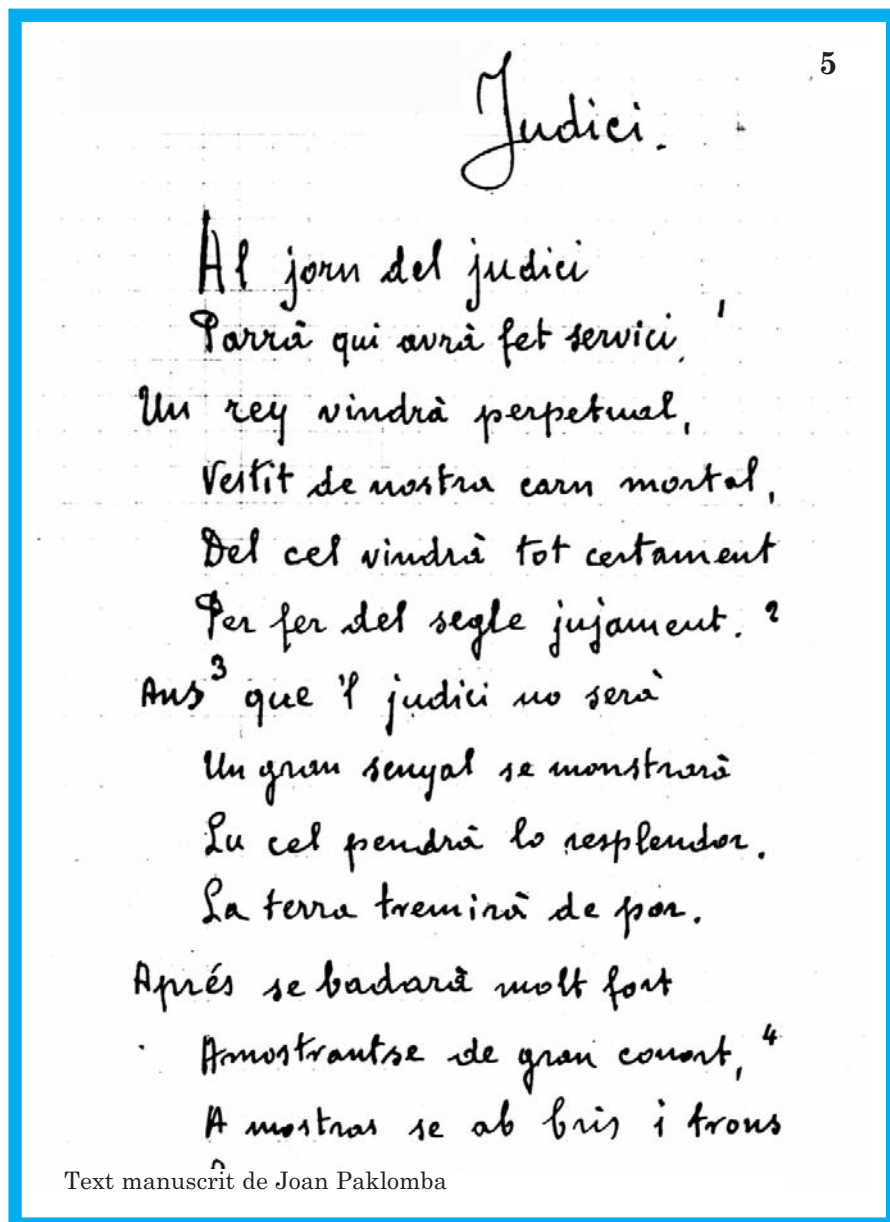 5
Judici.
Al jorn del judici
Parrà qui avrà fet servici. 1
Un rey vindrà perpetual,
Vestit de nostra carn mortal,
Del cel vindrà tot certament
Per fer del segle jujament. 2
Ans 3 que 'l judici no serà
Un gran senyal se monstrarà
Lu cel pendrà lo resplendor.
La terra tremirà de por.
Aprés se badarà molt fort
Amostrantse de gran conort, 4
A mostras se ab bris i trons
Text manuscrit de Joan Paklomba